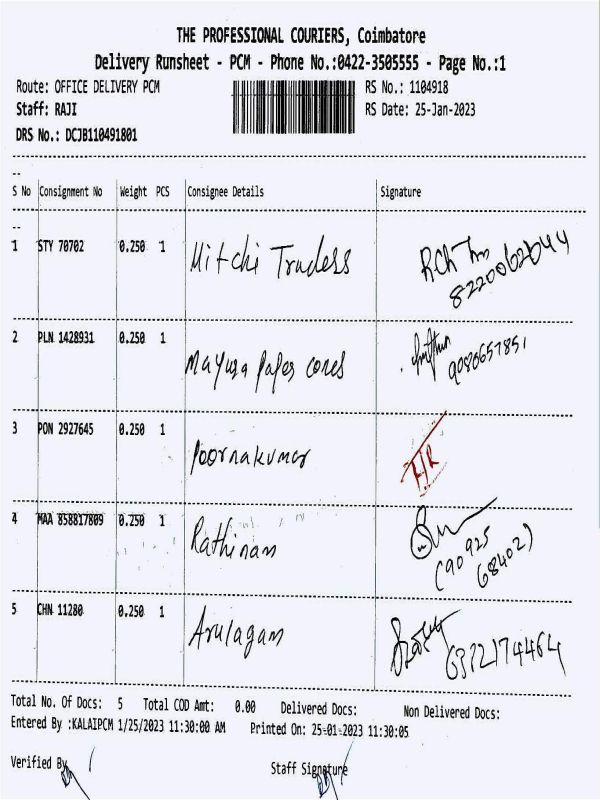 THE PROFESSIONAL COURIERS, Coimbatore
Delivery Runsheet - PCM - Phone No.:0422-3505555 - Page No.:1
Route: OFFICE DELIVERY PCM RS No.: 1104918
Staff: RAJI RS Date: 25-Jan-2023
DRS No.: DCJB110491801
--
S No Consignment No Weight PCS Consignee Details Signature
--
1 STY 70702 0.250 1 Mitchi Traders
2 PLN 1428931 0.250 1 Mayura Paper cones
9080657851
3 PON 2927645 0.250 1 Poornakumar
4 MAA 858817809 0.250 1 Rathinam
(90925
68402)
5 CHN 11280 0.250 1 Arulagam
Total No. Of Docs: 5 Total COD Amt: 0.00 Delivered Docs: Non Delivered Docs:
Entered By :KALAIPCM 1/25/2023 11:30:00 AM Printed On: 25-01-2023 11:30:05
Verified By
Staff Signature